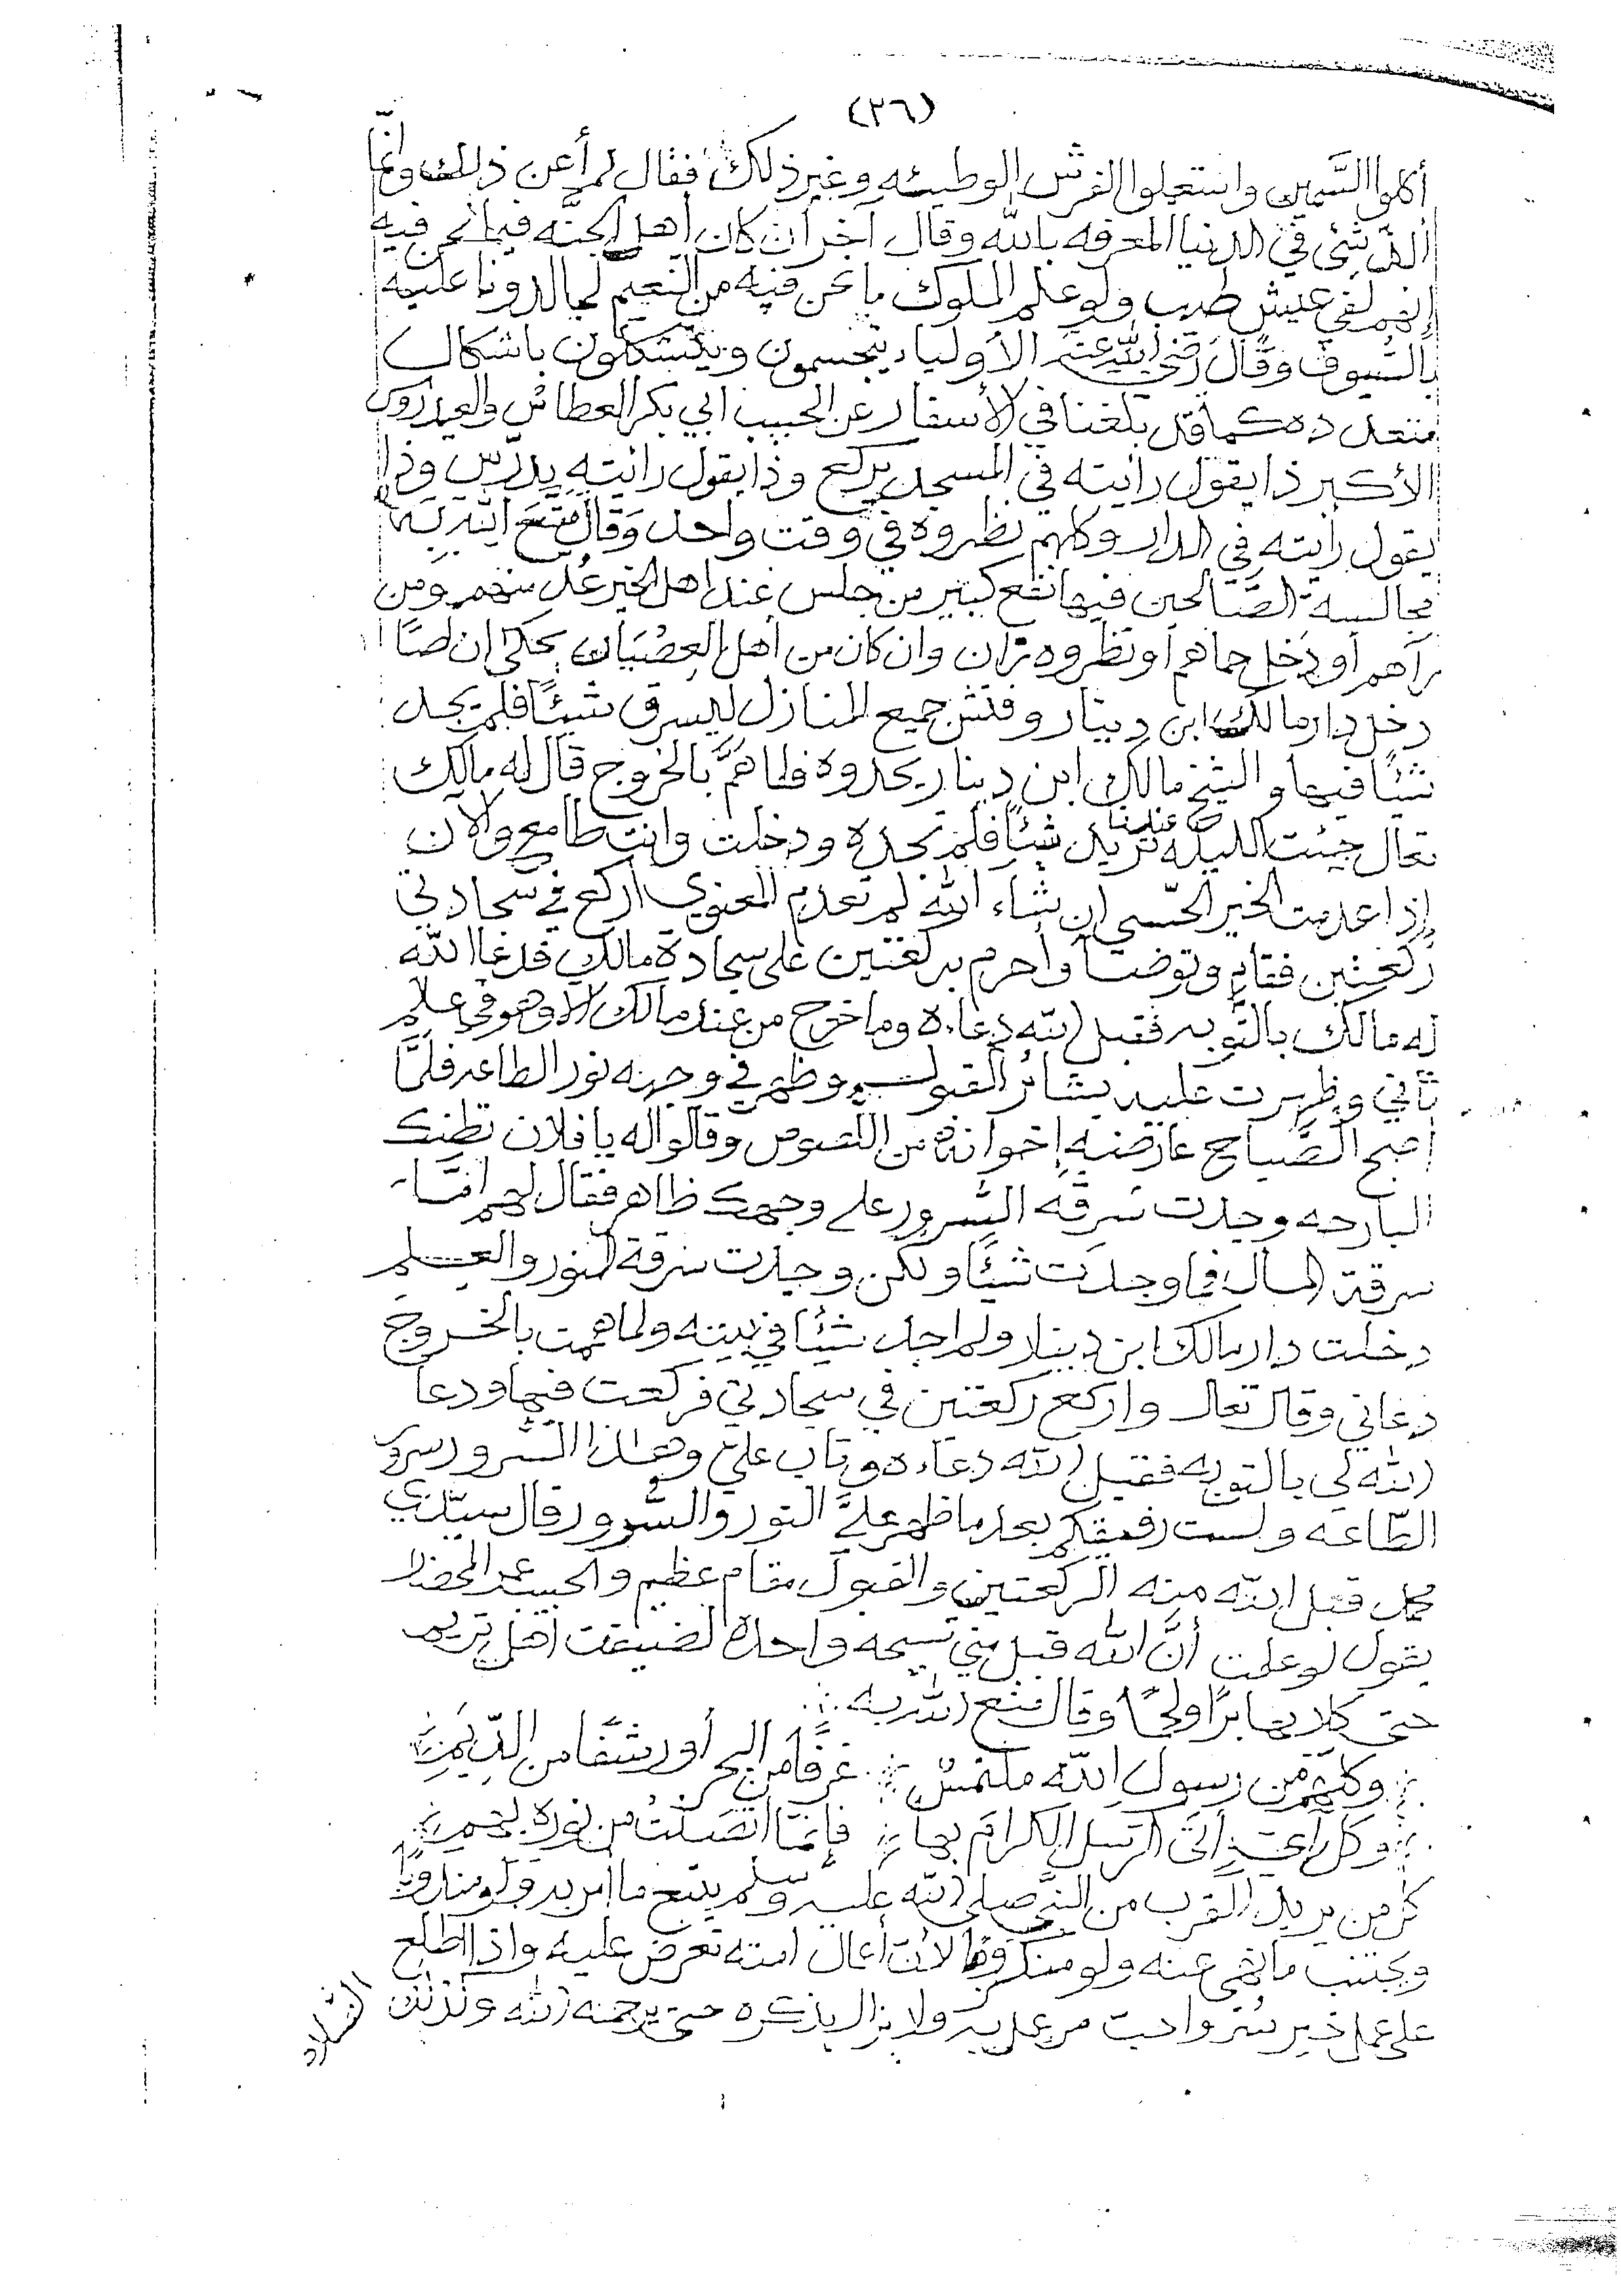 (٣٦)
أكلوا السَّمين واستعملوا الفرش الوطيئه وغير ذلك فقال لم أعن ذلك وانَّما
ألذّ شئ في الدنيا المعرفه بالله وقال آخر ان كان أهل الجنَّه فيما نحن فيه
إنهم لفي عيش طيب ولو علم الملوك ما نحن فيه من النَّعيم لجالدونا عليه
بالسُّيوف وقال رضي الله عنه الأولياء يتجسمون ويتشكلون باشكال
متعدده كما قد بلغنا في الأسفار عن الحبيب ابي بكر العطاس والعيدروس
الأكبر ذا يقول رأيته في المسجد يركع وذا يقول رائيته يدرّس وذا
يقول رأيته في الدار وكلهم نظروه في وقت واحد وقال متَّع الله به
مجالسة الصَّالحين فيها نفع كبير من جلس عند اهل الخير عُد منهم ومن
رآهم أو دخل حماهم أو نظروه تزان وان كان من أهل العصْيان يحكى ان لصًّا
دخل دار مالك ابن دينار وفتش جميع المنازل ليسرق شيئًا فلم يجد
شيئًا فيها والشيخ مالك ابن دينار يحدوه فلما همَّ بالخروج قال له مالك
تعال جيئت الليله عندنا تريد شيئًا فلم تجده ودخلت وانت طامع والآن
إذا عدمت الخير الحسّي ان شاء الله لم تعدم المعنوي أركع في سجادتي
ركعتين فقام وتوضأ وأحرم بركعتين على سجادة مالك فدعا الله
له مالك بالتَّوبه فقبل الله دعاءه وما خرج من عند مالك الا وهو في علم
ثاني وظهرت عليه بشائر القبول وظهر في وجهه نور الطاعه فلمَّا
أصبح الصَّباح عارضه إخوانه من اللصوص وقالوا له يا فلان نظنك
البارحه وجدت سرقه السرور على وجهك ظاهر فقال لهم امَّا
سرقة المال فما وجدت شيئًا ولكن وجدت سرقة النور والعلم
دخلت دار مالك ابن دينار ولم اجد شيئًا في بيته ولما هممت بالخروج
دعاني وقال تعال واركع ركعتين في سجادتي فركعت فيها ودعا
الله لي بالتوبه فقبل الله دعاءه وتاب عليَّ وهذا السُّرور سرور
الطّاعه ولست رفيقكم بعد ما ظهر عليَّ النور والسُّرور قال سيّدي
محمد قبل الله منه الركعتين والقبول مقام عظيم والحبيب عمر المحضار
يقول لو علمت أنَّ الله قبل مني تسبيحه واحده لضيفت أهل تريم
حتى كلابها برًّا ولحمًا وقال متع الله به
وكلّهم من رسول الله ملتمسٌ غرفًا من البحر أو رشفًا من الدِّيَمِ
وكل آيٍ أتى الرسل الكرام بها فإنَّما اتَّصلت من نوره بهم
كل من يريد القرب من النَّبي صلى الله عليه وسلم يتبع ما امر به ولو مندوبًا
ويجتنب ما نهى عنه ولو مكروهًا لأن أعمال امته تعرض عليه واذا اطلع
على عمل خير سُر واحب من عمل به ولا يزال يذكره حتى يرحمه الله وكذلك